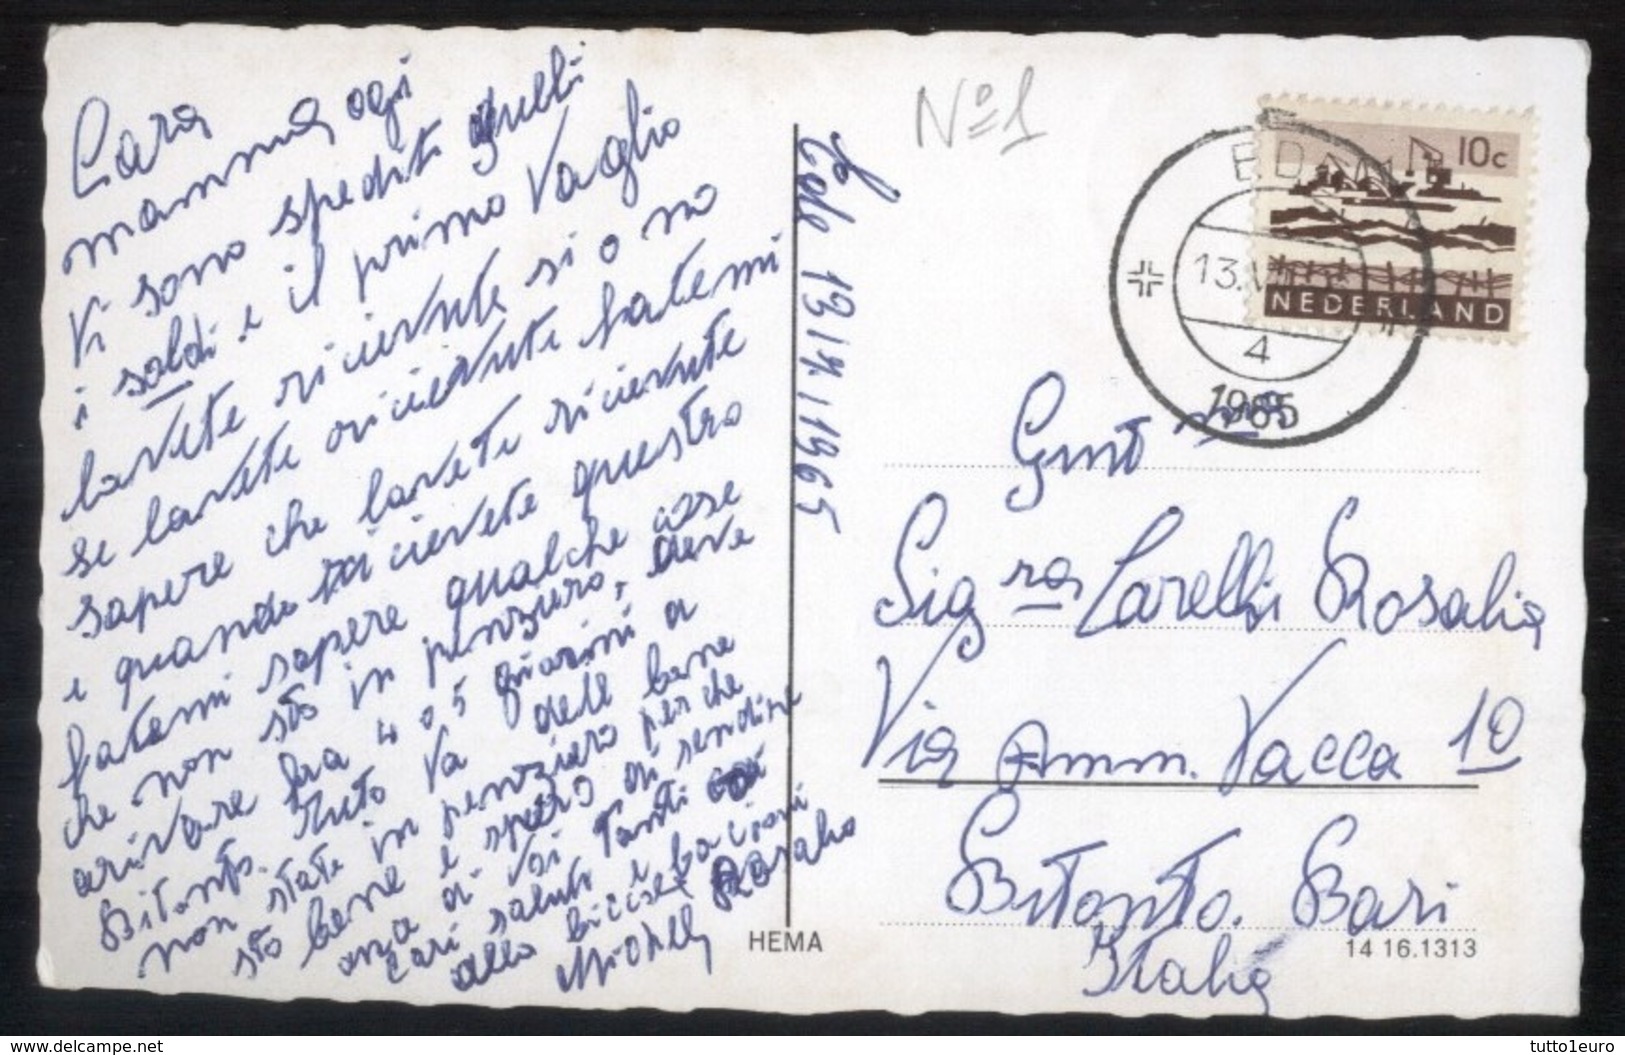 Cara
mamma ogi
Vi sono spedito quelli
i soldi. e il primo Vaglio
lavete ricievute si o no
se lavete ricievute fatemi
sapere che lavete ricievute
e quando ricievete questro
fatemi sapere qualche cose
che non stò in penziero, deve
arivare fra 4 o 5 giorni a
Bitonto. Tuto Va dell bene
non state in penziero perche
stò bene e spero di sendire
anza di Voi Tanti
cari saluti e bacioni
alla
Rosalia
Ede 13/7/1965
Nº=1
EDE
13.
4
1965
10c
NEDERLAND
Gent
Sig.ra Carelli Rosalia
Via Amm. Vacca 10
Bitonto. Bari
Italia
HEMA
14 16.1313
www.delcampe.net
tutto1euro